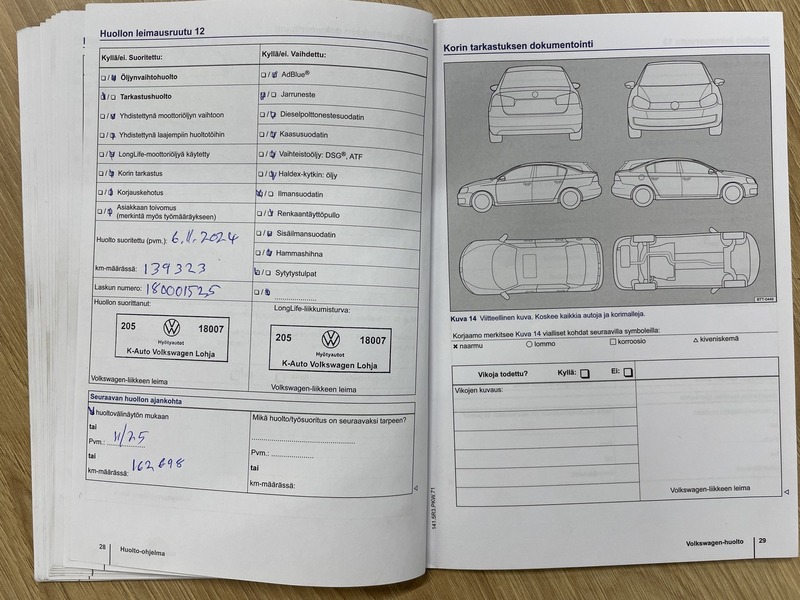 Huollon leimausruutu 12
Kyllä/ei. Suoritettu:
❏/❏ Öljynvaihtohuolto
❏/❏ Tarkastushuolto
❏/❏ Yhdistettynä moottoriöljyn vaihtoon
❏/❏ Yhdistettynä laajempiin huoltotöihin
❏/❏ LongLife-moottoriöljyä käytetty
❏/❏ Korin tarkastus
❏/❏ Korjauskehotus
❏/❏ Asiakkaan toivomus
(merkintä myös työmääräykseen)
Huolto suoritettu (pvm.): 6.11.2024
km-määrässä: 139323
Laskun numero: 180001525
Huollon suorittanut:
205 18007
Hyötyautot
K-Auto Volkswagen Lohja
Volkswagen-liikkeen leima
Kyllä/ei. Vaihdettu:
❏/❏ AdBlue®
❏/❏ Jarruneste
❏/❏ Dieselpolttonestesuodatin
❏/❏ Kaasusuodatin
❏/❏ Vaihteistoöljy: DSG®, ATF
❏/❏ Haldex-kytkin: öljy
❏/❏ Ilmansuodatin
❏/❏ Renkaantäyttöpullo
❏/❏ Sisäilmansuodatin
❏/❏ Hammashihna
❏/❏ Sytytystulpat
❏/❏ ....................
LongLife-liikkumisturva:
205 18007
Hyötyautot
K-Auto Volkswagen Lohja
Volkswagen-liikkeen leima
Seuraavan huollon ajankohta
huoltovälinäytön mukaan
tai
Pvm.: 11/25
tai
km-määrässä: 162698
Mikä huolto/työsuoritus on seuraavaksi tarpeen?
Pvm.: ....................
tai
km-määrässä:
28 Huolto-ohjelma
Korin tarkastuksen dokumentointi
BTT-0449
Kuva 14 Viitteellinen kuva. Koskee kaikkia autoja ja korimalleja.
Korjaamo merkitsee Kuva 14 vialliset kohdat seuraavilla symboleilla:
× naarmu ○ lommo □ korroosio △ kiveniskemä
Vikoja todettu? Kyllä: ❏ Ei: ❏
Vikojen kuvaus:
Volkswagen-liikkeen leima
141.5R3.PKW.71
Volkswagen-huolto 29